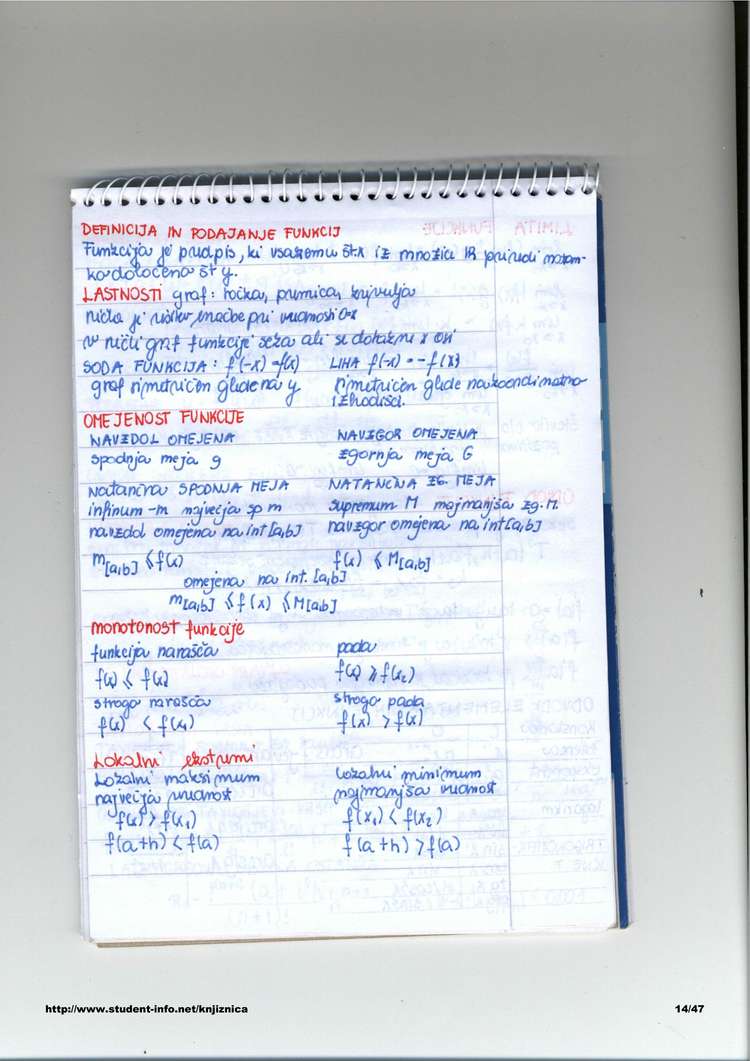 DEFINICIJA IN PODAJANJE FUNKCIJ
Funkcija je predpis, ki vsakemu št. x iz množice IR priredi natan-
ko določeno št y.
LASTNOSTI graf: točka, premica, krivulja
ničla je rešitev enačbe pri vrednosti 0x
v ničli graf funkcije seka ali se dotakne x osi
SODA FUNKCIJA: f(-x) = f(x) LIHA f(-x) = -f(x)
graf simetričen glede na y simetričen glede na koordinatno
izhodišči.
OMEJENOST FUNKCIJE
NAVZDOL OMEJENA NAVZGOR OMEJENA
spodnja meja g zgornja meja G
Natančna SPODNJA MEJA NATANČNA ZG. MEJA
infinum -m največja sp m supremum M najmanjša zg. M.
navzdol omejena na int [a,b] navzgor omejena na int [a,b]
m[a,b] ≤ f(x) f(x) ≤ M[a,b]
omejena na int. [a,b]
m[a,b] ≤ f(x) ≤ M[a,b]
monotonost funkcije
funkcija narašča pada
f(x) ≤ f(x) f(x) ≥ f(x₂)
strogo narašča strogo pada
f(x) < f(x₁) f(x) > f(x)
Lokalni ekstremi
Lokalni maksimum lokalni minimum
največja vrednost najmanjša vrednost
f(x) > f(x₁) f(x₁) < f(x₂)
f(a+h) < f(a) f(a+h) > f(a)
http://www.student-info.net/knjiznica 14/47